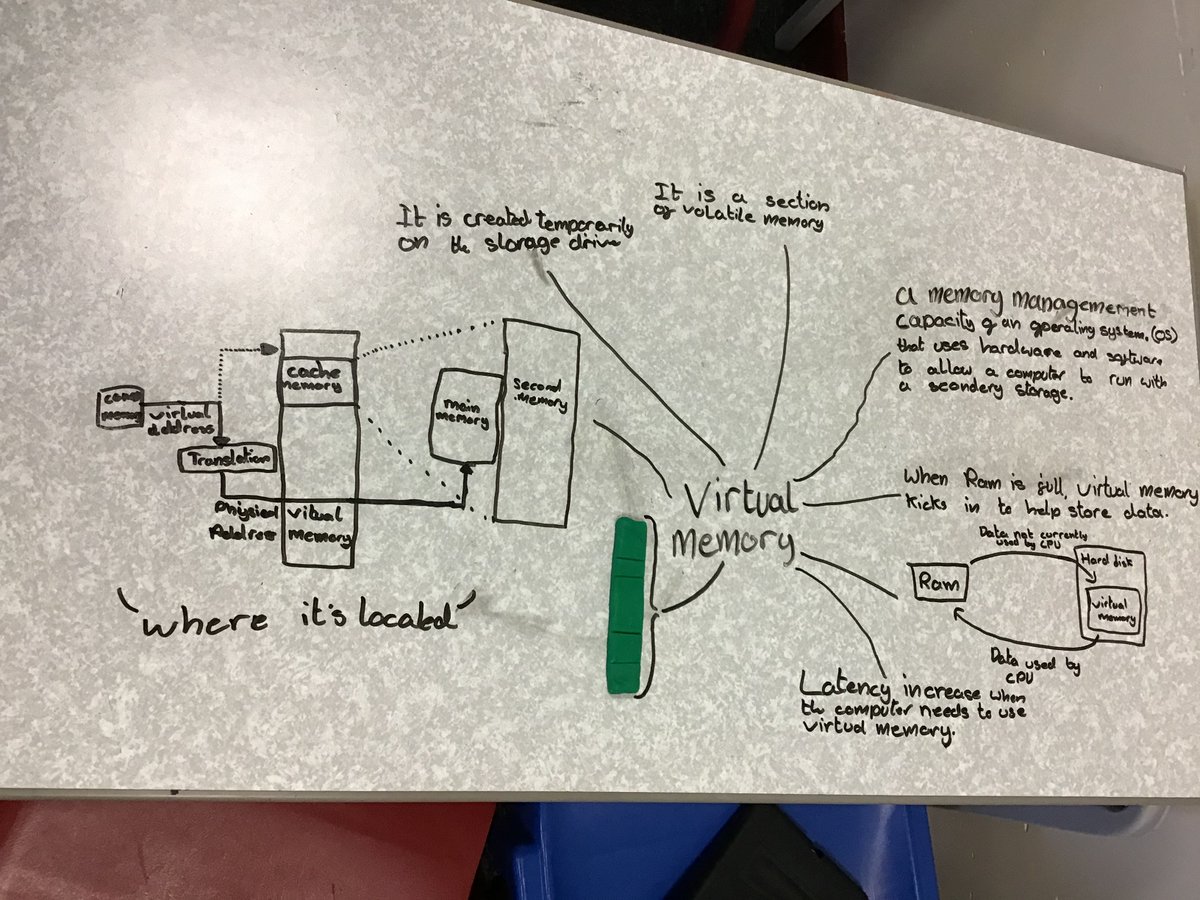 It is created temporarily
on the storage drive
It is a section
of volatile memory
a memory management
capacity of an operating system. (OS)
that uses hardware and software
to allow a computer to run with
a secondery storage.
When Ram is full, virtual memory
kicks in to help store data.
Data not currently
used by CPU
Ram
Hard disk
virtual
memory
Data used by
CPU
Latency increase when
the computer needs to use
virtual memory.
Virtual
memory
cache
memory
main
memory
Second
memory
virtual
address
Translation
Physical
Address
memory
where it's located